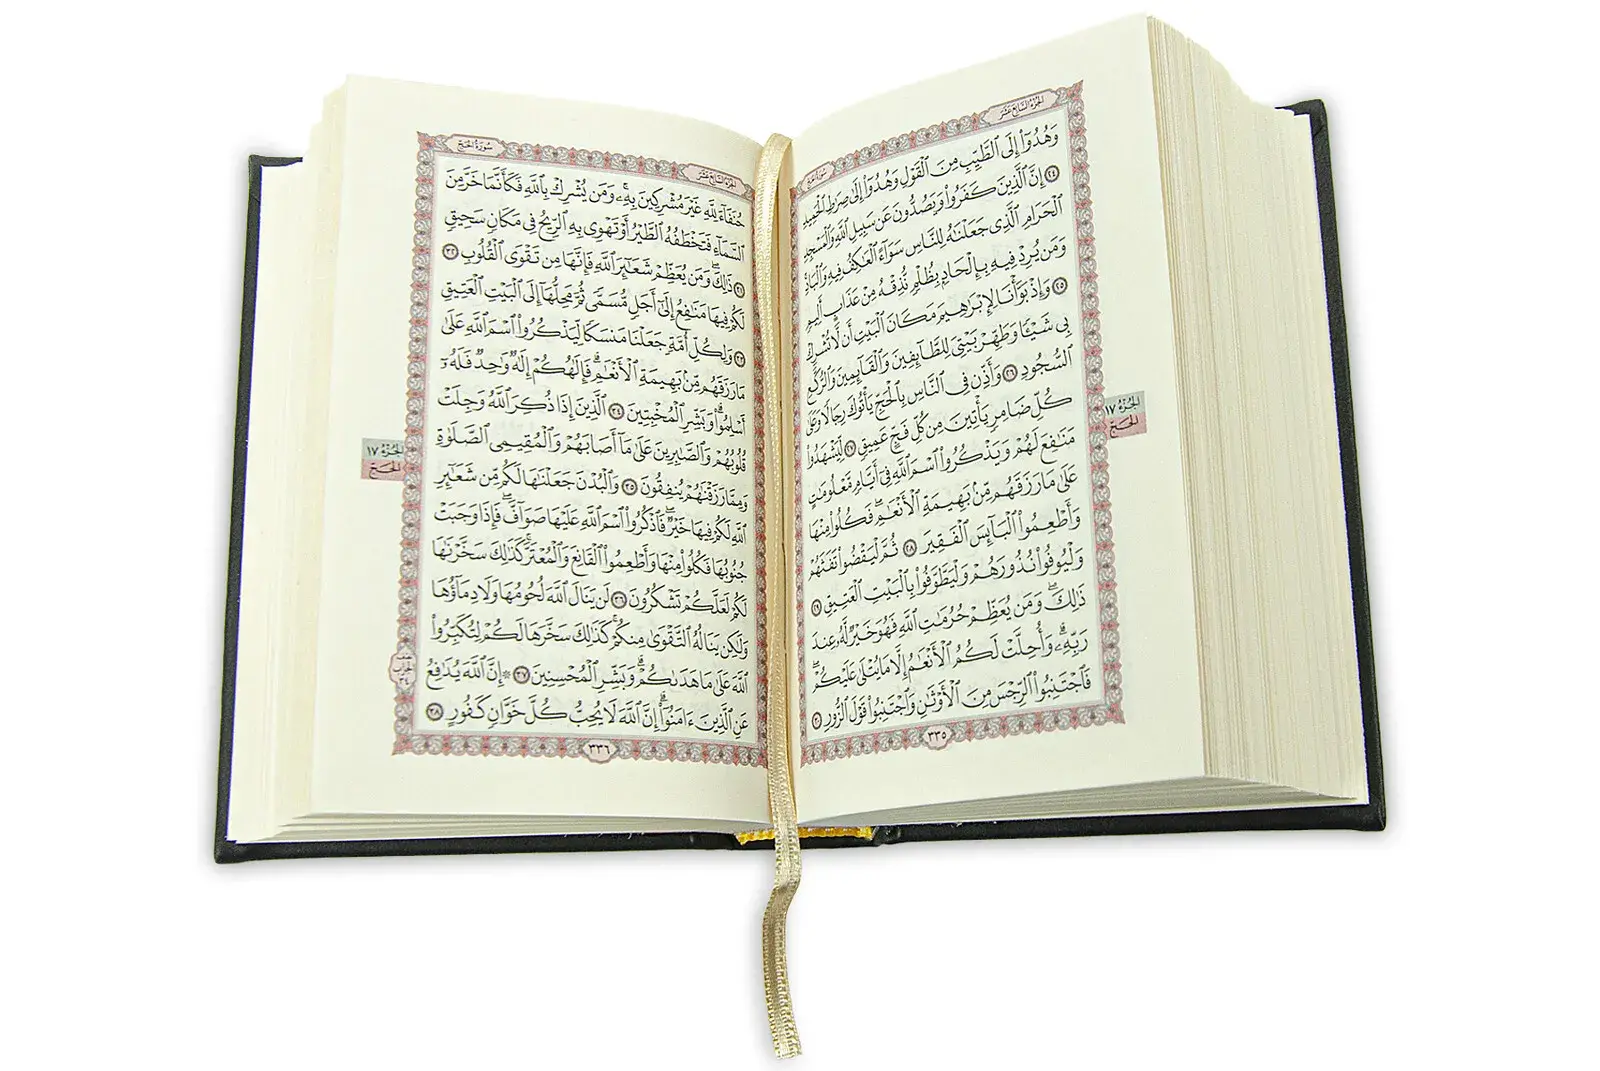 الجزء السابع عشر
سورة الحج
وَهُدُوٓا۟ إِلَى ٱلطَّيِّبِ مِنَ ٱلْقَوْلِ وَهُدُوٓا۟ إِلَىٰ صِرَٰطِ ٱلْحَمِيدِ
٢٤ إِنَّ ٱلَّذِينَ كَفَرُوا۟ وَيَصُدُّونَ عَن سَبِيلِ ٱللَّهِ وَٱلْمَسْجِدِ
ٱلْحَرَامِ ٱلَّذِى جَعَلْنَٰهُ لِلنَّاسِ سَوَآءً ٱلْعَٰكِفُ فِيهِ وَٱلْبَادِ
وَمَن يُرِدْ فِيهِ بِإِلْحَادٍۭ بِظُلْمٍ نُّذِقْهُ مِنْ عَذَابٍ أَلِيمٍ
٢٥ وَإِذْ بَوَّأْنَا لِإِبْرَٰهِيمَ مَكَانَ ٱلْبَيْتِ أَن لَّا تُشْرِكْ
بِى شَيْـًٔا وَطَهِّرْ بَيْتِىَ لِلطَّآئِفِينَ وَٱلْقَآئِمِينَ وَٱلرُّكَّعِ
ٱلسُّجُودِ ٢٦ وَأَذِّن فِى ٱلنَّاسِ بِٱلْحَجِّ يَأْتُوكَ رِجَالًا وَعَلَىٰ
كُلِّ ضَامِرٍ يَأْتِينَ مِن كُلِّ فَجٍّ عَمِيقٍ ٢٧ لِّيَشْهَدُوا۟
مَنَٰفِعَ لَهُمْ وَيَذْكُرُوا۟ ٱسْمَ ٱللَّهِ فِىٓ أَيَّامٍ مَّعْلُومَٰتٍ
عَلَىٰ مَا رَزَقَهُم مِّنۢ بَهِيمَةِ ٱلْأَنْعَٰمِ ۖ فَكُلُوا۟ مِنْهَا
وَأَطْعِمُوا۟ ٱلْبَآئِسَ ٱلْفَقِيرَ ٢٨ ثُمَّ لْيَقْضُوا۟ تَفَثَهُمْ
وَلْيُوفُوا۟ نُذُورَهُمْ وَلْيَطَّوَّفُوا۟ بِٱلْبَيْتِ ٱلْعَتِيقِ ٢٩
ذَٰلِكَ ۖ وَمَن يُعَظِّمْ حُرُمَٰتِ ٱللَّهِ فَهُوَ خَيْرٌ لَّهُۥ عِندَ
رَبِّهِۦ ۗ وَأُحِلَّتْ لَكُمُ ٱلْأَنْعَٰمُ إِلَّا مَا يُتْلَىٰ عَلَيْكُمْ ۖ
فَٱجْتَنِبُوا۟ ٱلرِّجْسَ مِنَ ٱلْأَوْثَٰنِ وَٱجْتَنِبُوا۟ قَوْلَ ٱلزُّورِ ٣٠
٣٣٥
الجزء ١٧
الحج
الجزء السابع عشر
سورة الحج
حُنَفَآءَ لِلَّهِ غَيْرَ مُشْرِكِينَ بِهِۦ ۚ وَمَن يُشْرِكْ بِٱللَّهِ فَكَأَنَّمَا خَرَّ مِنَ
ٱلسَّمَآءِ فَتَخْطَفُهُ ٱلطَّيْرُ أَوْ تَهْوِى بِهِ ٱلرِّيحُ فِى مَكَانٍ سَحِيقٍ
٣١ ذَٰلِكَ ۖ وَمَن يُعَظِّمْ شَعَٰٓئِرَ ٱللَّهِ فَإِنَّهَا مِن تَقْوَى ٱلْقُلُوبِ ٣٢
لَكُمْ فِيهَا مَنَٰفِعُ إِلَىٰٓ أَجَلٍ مُّسَمًّى ثُمَّ مَحِلُّهَآ إِلَى ٱلْبَيْتِ ٱلْعَتِيقِ
٣٣ وَلِكُلِّ أُمَّةٍ جَعَلْنَا مَنسَكًا لِّيَذْكُرُوا۟ ٱسْمَ ٱللَّهِ عَلَىٰ
مَا رَزَقَهُم مِّنۢ بَهِيمَةِ ٱلْأَنْعَٰمِ ۗ فَإِلَٰهُكُمْ إِلَٰهٌ وَٰحِدٌ فَلَهُۥٓ
أَسْلِمُوا۟ ۗ وَبَشِّرِ ٱلْمُخْبِتِينَ ٣٤ ٱلَّذِينَ إِذَا ذُكِرَ ٱللَّهُ وَجِلَتْ
قُلُوبُهُمْ وَٱلصَّٰبِرِينَ عَلَىٰ مَآ أَصَابَهُمْ وَٱلْمُقِيمِى ٱلصَّلَوٰةِ
وَمِمَّا رَزَقْنَٰهُمْ يُنفِقُونَ ٣٥ وَٱلْبُدْنَ جَعَلْنَٰهَا لَكُم مِّن شَعَٰٓئِرِ
ٱللَّهِ لَكُمْ فِيهَا خَيْرٌ ۖ فَٱذْكُرُوا۟ ٱسْمَ ٱللَّهِ عَلَيْهَا صَوَآفَّ ۖ فَإِذَا وَجَبَتْ
جُنُوبُهَا فَكُلُوا۟ مِنْهَا وَأَطْعِمُوا۟ ٱلْقَانِعَ وَٱلْمُعْتَرَّ ۚ كَذَٰلِكَ سَخَّرْنَٰهَا
لَكُمْ لَعَلَّكُمْ تَشْكُرُونَ ٣٦ لَن يَنَالَ ٱللَّهَ لُحُومُهَا وَلَا دِمَآؤُهَا
وَلَٰكِن يَنَالُهُ ٱلتَّقْوَىٰ مِنكُمْ ۚ كَذَٰلِكَ سَخَّرَهَا لَكُمْ لِتُكَبِّرُوا۟
ٱللَّهَ عَلَىٰ مَا هَدَىٰكُمْ ۗ وَبَشِّرِ ٱلْمُحْسِنِينَ ٣٧ ۞ إِنَّ ٱللَّهَ يُدَٰفِعُ
عَنِ ٱلَّذِينَ ءَامَنُوٓا۟ ۗ إِنَّ ٱللَّهَ لَا يُحِبُّ كُلَّ خَوَّانٍ كَفُورٍ ٣٨
٣٣٦
الجزء ١٧
الحج
نصف
الحزب
٣٤